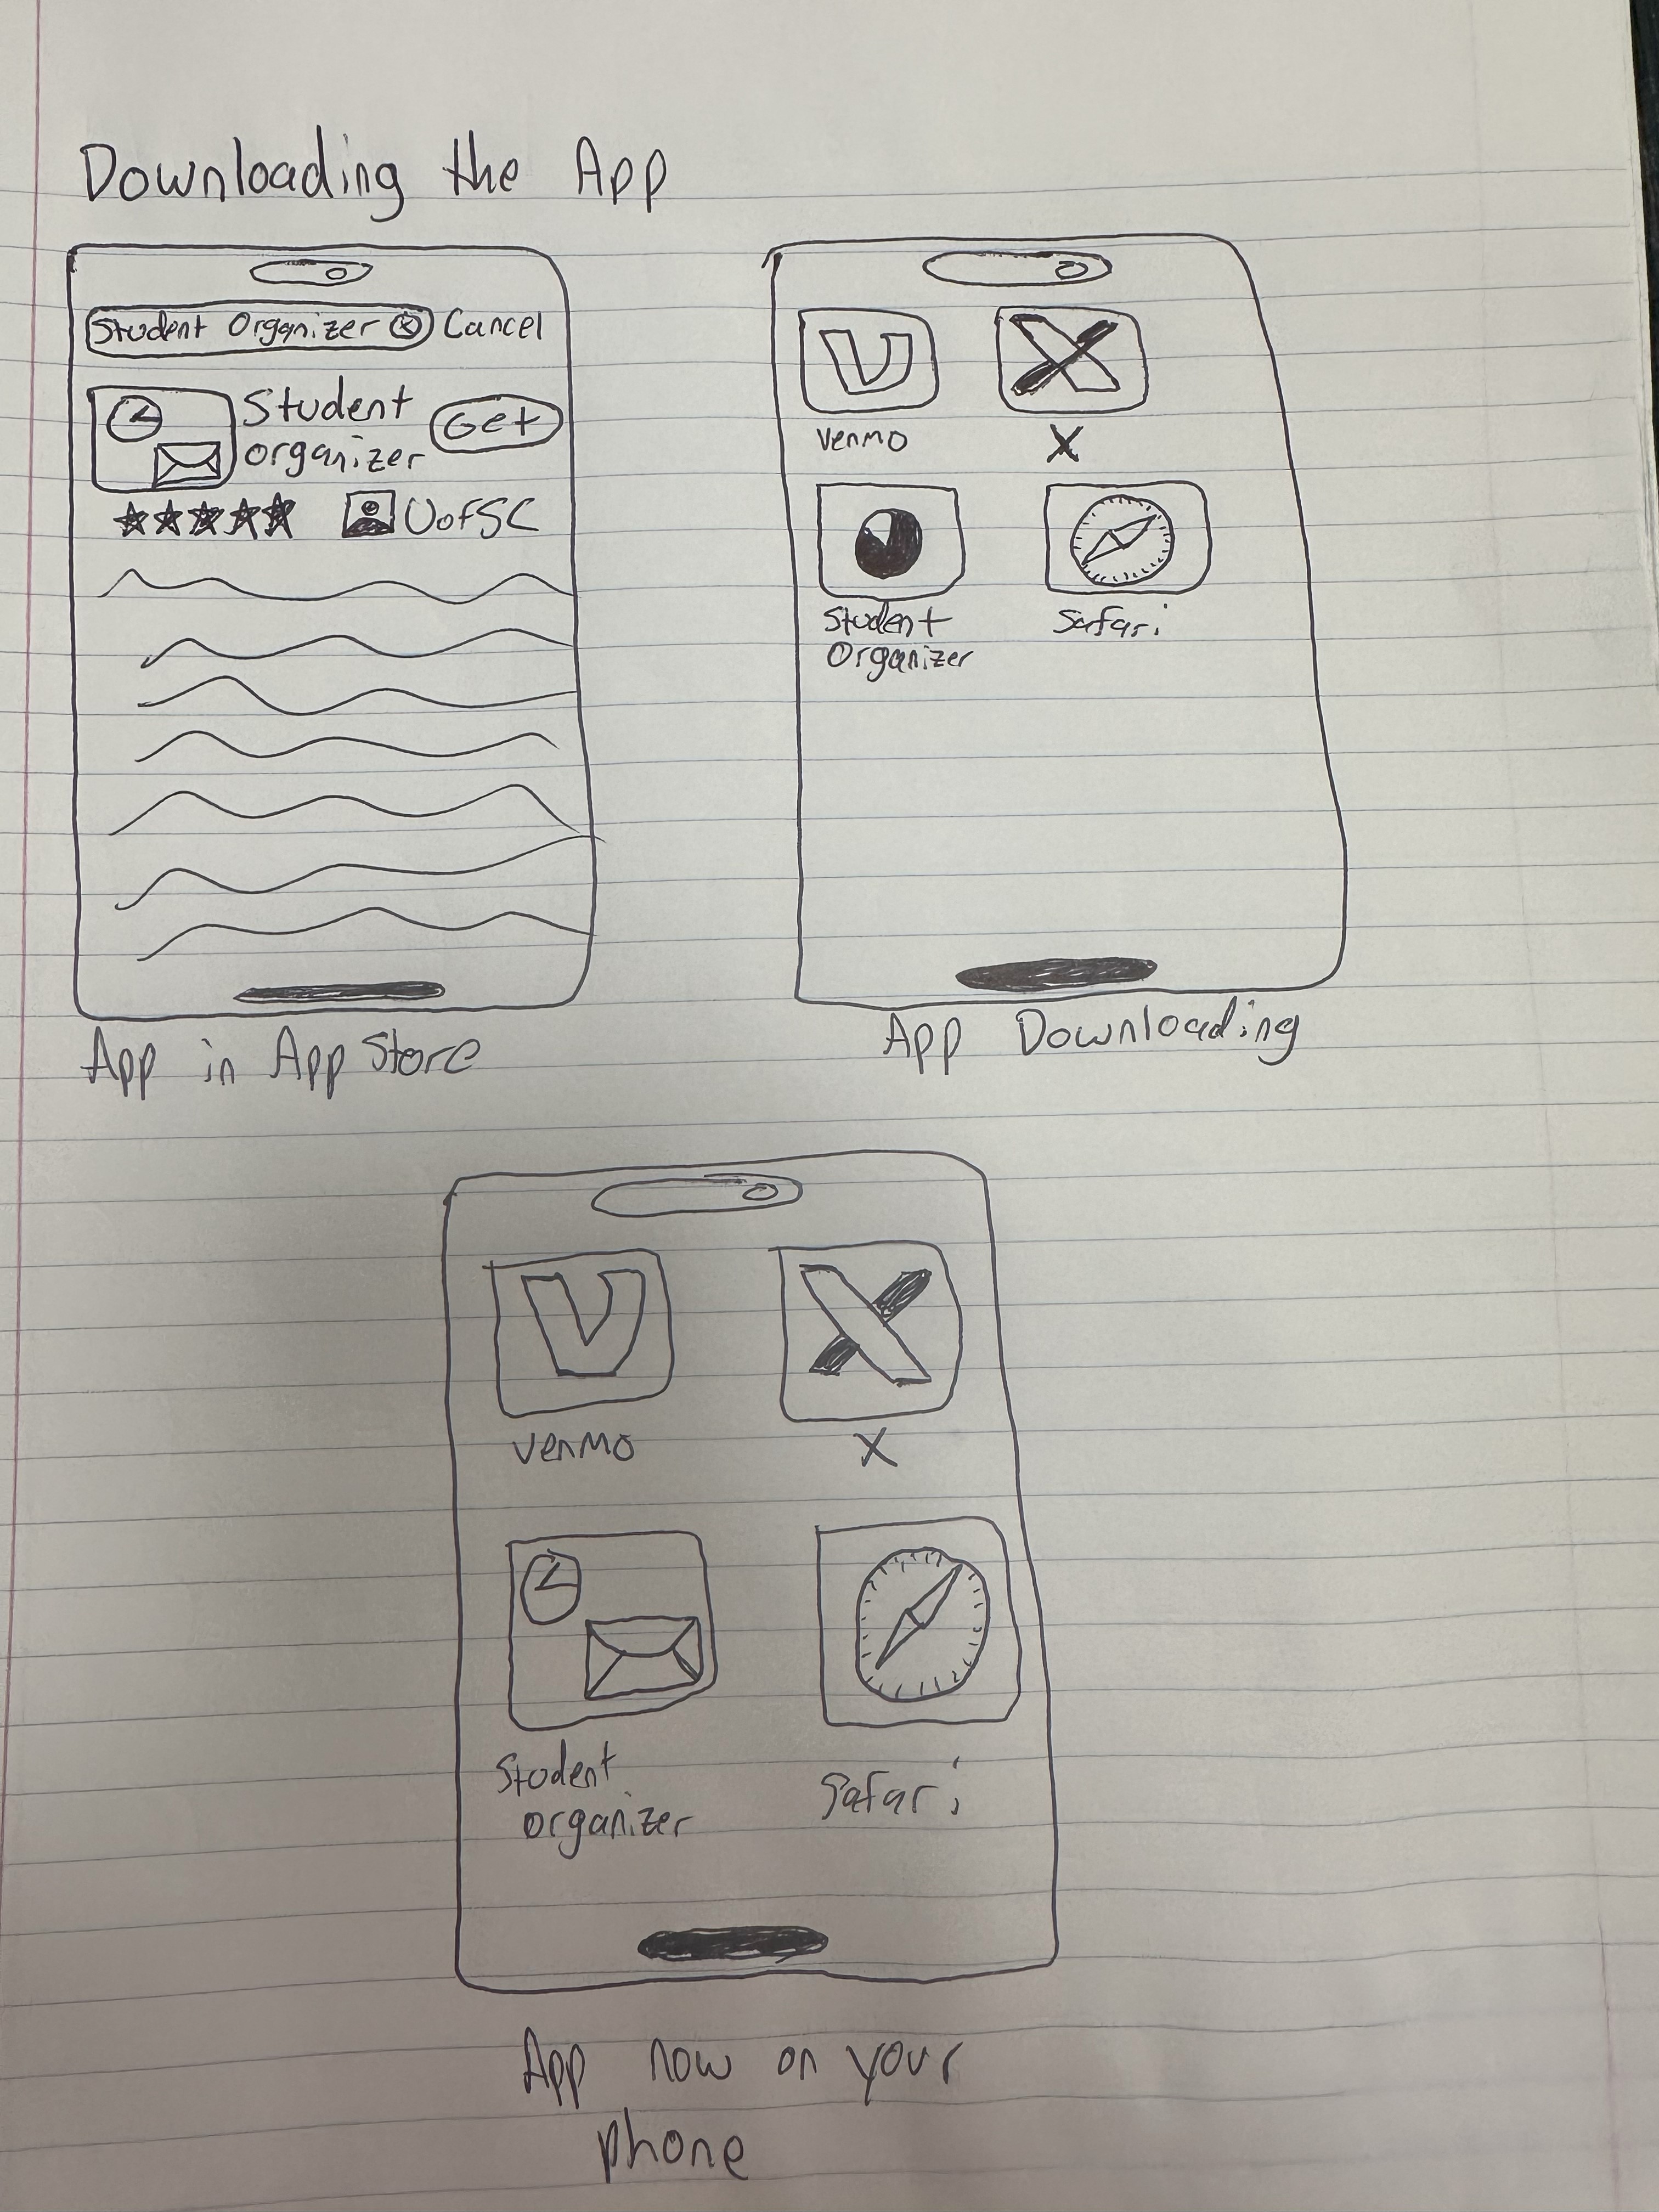 Downloading the App
Student Organizer ⓧ Cancel
Student
organizer
Get
UofSC
App in App Store
V X
venmo X
Student
Organizer
Safari
App Downloading
V X
venmo X
Student
organizer
Safari
App now on your
phone